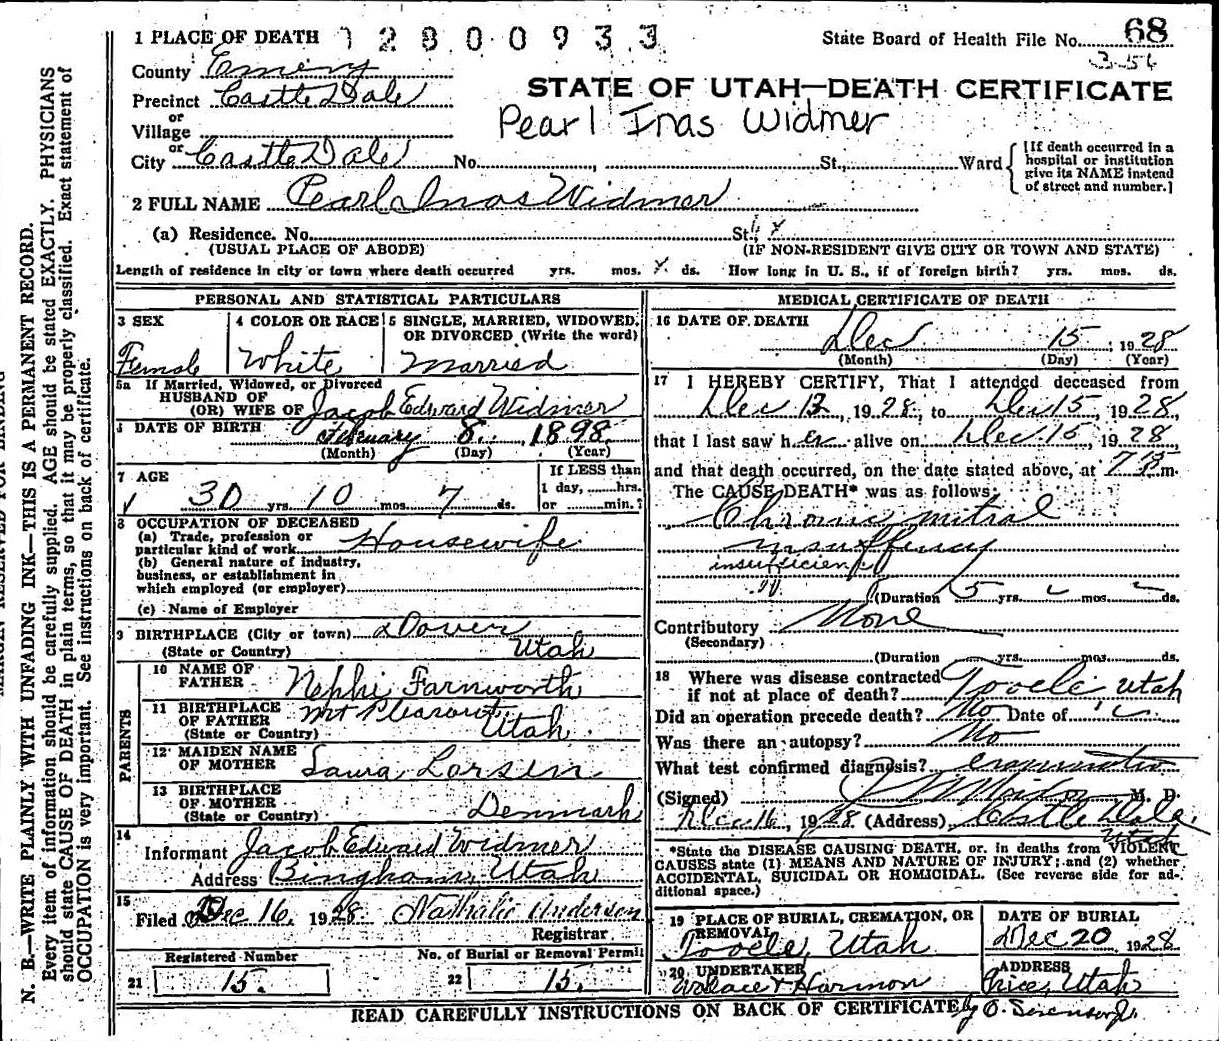 1 PLACE OF DEATH 12800933
State Board of Health File No. 68
3-56
County Emery
Precinct Castle Dale
or
Village
or
City Castle Dale No. St., Ward
[If death occurred in a
hospital or institution
give its NAME instead
of street and number.]
STATE OF UTAH—DEATH CERTIFICATE
Pearl Inas Widmer
2 FULL NAME Pearl Inas Widmer
(a) Residence. No. St.
(USUAL PLACE OF ABODE) (IF NON-RESIDENT GIVE CITY OR TOWN AND STATE)
Length of residence in city or town where death occurred yrs. mos. ds. How long in U. S., if of foreign birth? yrs. mos. ds.
PERSONAL AND STATISTICAL PARTICULARS
3 SEX
Female
4 COLOR OR RACE
White
5 SINGLE, MARRIED, WIDOWED,
OR DIVORCED (Write the word)
Married
5a If Married, Widowed, or Divorced
HUSBAND OF
(OR) WIFE OF Jacob Edward Widmer
DATE OF BIRTH February 8. 1898.
(Month) (Day) (Year)
7 AGE
30 yrs. 10 mos. 7 ds.
If LESS than
1 day, hrs.
or min.?
8 OCCUPATION OF DECEASED
(a) Trade, profession or
particular kind of work Housewife
(b) General nature of industry,
business, or establishment in
which employed (or employer)
(c) Name of Employer
9 BIRTHPLACE (City or town) Dover
(State or Country) Utah
PARENTS
10 NAME OF
FATHER Nephi Farnworth
11 BIRTHPLACE
OF FATHER Mt Pleasant
(State or Country) Utah.
12 MAIDEN NAME
OF MOTHER Laura Larsen
13 BIRTHPLACE
OF MOTHER
(State or Country) Denmark
14
Informant Jacob Edward Widmer
Address Bingham, Utah
15
Filed Dec 16, 1928 Nathalie Anderson
Registrar
Registered Number
21 15.
No. of Burial or Removal Permit
22 15.
MEDICAL CERTIFICATE OF DEATH
16 DATE OF DEATH
Dec 15, 1928
(Month) (Day) (Year)
17 I HEREBY CERTIFY, That I attended deceased from
Dec 12, 1928, to Dec 15, 1928,
that I last saw her alive on Dec 15, 1928
and that death occurred, on the date stated above, at m.
The CAUSE DEATH* was as follows:
Chronic mitral
insuffency
insufficiency
(Duration 5 yrs. mos. ds.
Contributory None
(Secondary)
(Duration yrs. mos. ds.
18 Where was disease contracted
if not at place of death? Tooele Utah
Did an operation precede death? No Date of
Was there an autopsy? No
What test confirmed diagnosis? examination
(Signed) M. D.
Dec 16, 1928 (Address) Castle Dale,
Utah
*State the DISEASE CAUSING DEATH, or, in deaths from VIOLENT
CAUSES state (1) MEANS AND NATURE OF INJURY; and (2) whether
ACCIDENTAL, SUICIDAL OR HOMICIDAL. (See reverse side for ad-
ditional space.)
19 PLACE OF BURIAL, CREMATION, OR
REMOVAL
Tooele, Utah
DATE OF BURIAL
Dec 20, 1928
20 UNDERTAKER
Wallace & Harmon
ADDRESS
Price, Utah
READ CAREFULLY INSTRUCTIONS ON BACK OF CERTIFICATE
by O. Sorenson Jr.
N. B.—WRITE PLAINLY WITH UNFADING INK—THIS IS A PERMANENT RECORD.
Every item of information should be carefully supplied. AGE should be stated EXACTLY. PHYSICIANS
should state CAUSE OF DEATH in plain terms, so that it may be properly classified. Exact statement of
OCCUPATION is very important. See instructions on back of certificate.